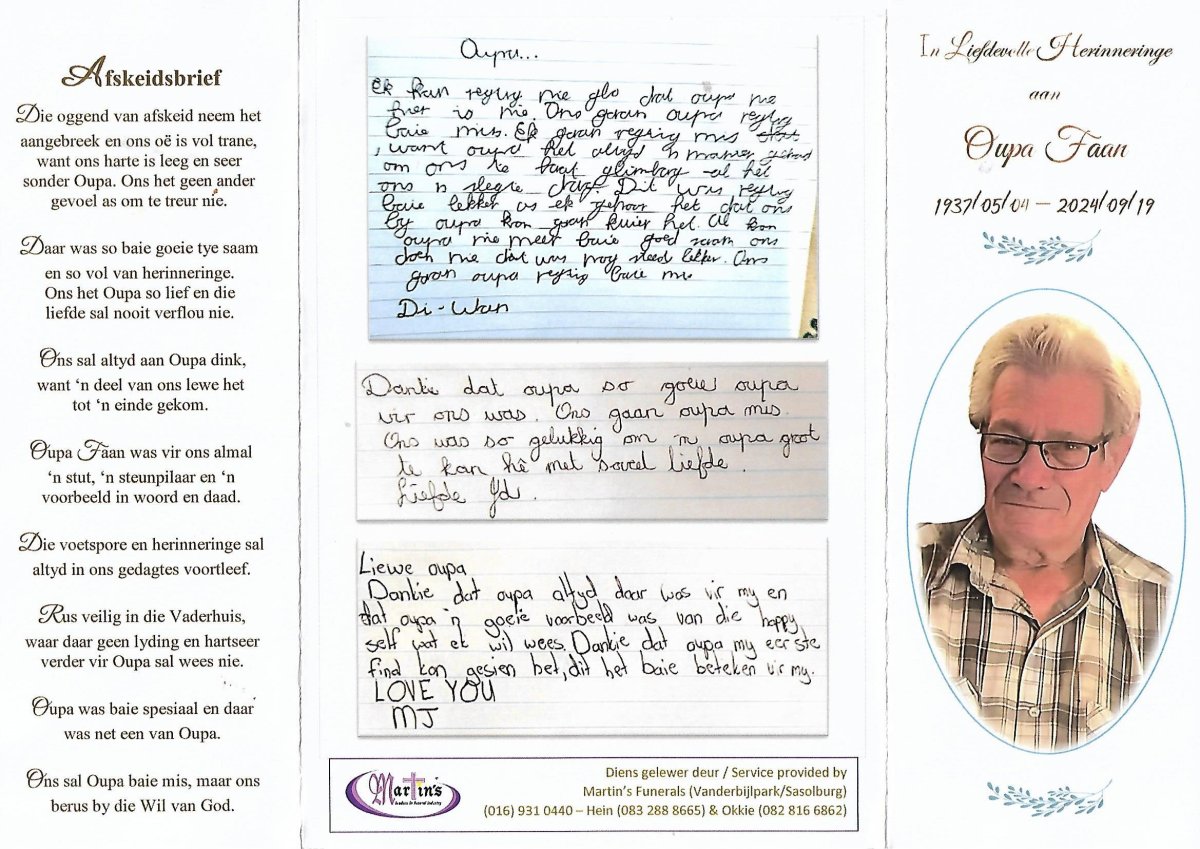 Afskeidsbrief
Die oggend van afskeid neem het
aangebreek en ons oë is vol trane,
want ons harte is leeg en seer
sonder Oupa. Ons het geen ander
gevoel as om te treur nie.
Daar was so baie goeie tye saam
en so vol van herinneringe.
Ons het Oupa so lief en die
liefde sal nooit verflou nie.
Ons sal altyd aan Oupa dink,
want ‘n deel van ons lewe het
tot ‘n einde gekom.
Oupa Faan was vir ons almal
‘n stut, ‘n steunpilaar en ‘n
voorbeeld in woord en daad.
Die voetspore en herinneringe sal
altyd in ons gedagtes voortleef.
Rus veilig in die Vaderhuis,
waar daar geen lyding en hartseer
verder vir Oupa sal wees nie.
Oupa was baie spesiaal en daar
was net een van Oupa.
Ons sal Oupa baie mis, maar ons
berus by die Wil van God.
Oupa...
Ek kan regtig nie glo dat oupa nie
hier is nie. Ons gaan oupa regtig
baie mis. Ek gaan regtig mis
, want oupa het altyd 'n manier gehad
om ons te laat glimlag al het
ons 'n slegte dag. Dit was regtig
baie lekker as ek gehoor het dat ons
by oupa kan gaan kuier het. Al kon
oupa nie meer baie goed saam ons
doen nie dat was nog steed lekker. Ons
gaan oupa regtig baie mis
Di-Wan
Dankie dat oupa so goeie oupa
vir ons was. Ons gaan oupa mis.
Ons was so gelukkig om 'n oupa groot
te kan hê met soveel liefde.
Liefde
Liewe oupa
Dankie dat oupa altyd daar was vir my en
dat oupa 'n goeie voorbeeld was van die happy
self wat ek wil wees. Dankie dat oupa my eerste
find kon gesien het, dit het baie beteken vir my.
LOVE YOU
MJ
Martin's
leaders in funeral industry
Diens gelewer deur / Service provided by
Martin's Funerals (Vanderbijlpark/Sasolburg)
(016) 931 0440 – Hein (083 288 8665) & Okkie (082 816 6862)
In Liefdevolle Herinneringe
aan
Oupa Faan
1937/05/04 – 2024/09/19